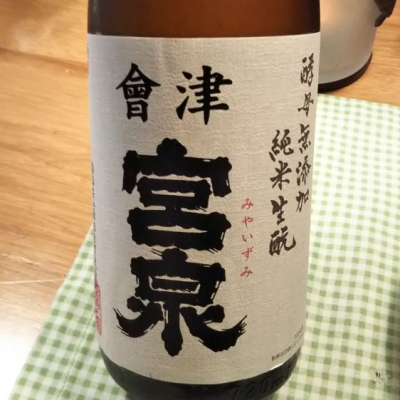 酵母無添加
純米生酛
會津
宮泉
みやいずみ